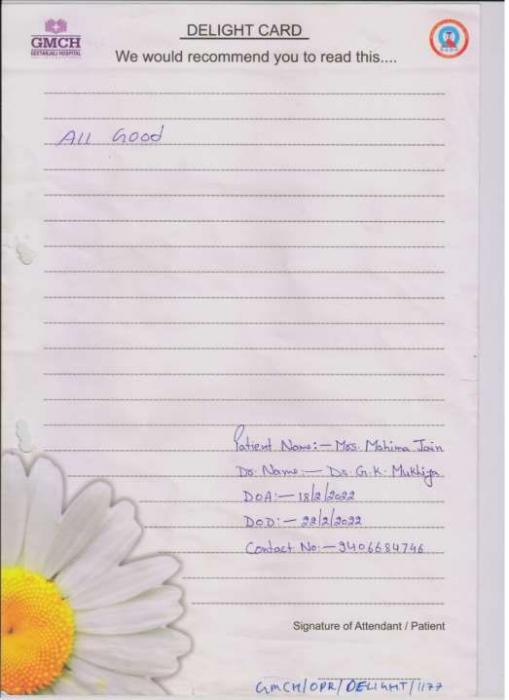 GMCH
GEETANJALI HOSPITAL
DELIGHT CARD
We would recommend you to read this....
All Good
Patient Name:- Mrs. Mahima Jain
Dr. Name:- Dr. G.K. Mukhiya
DOA:- 18/2/2022
DOD:- 22/2/2022
Contact No:- 9406684746
Signature of Attendant / Patient
GMCH/OPR/DELIGHT/1177